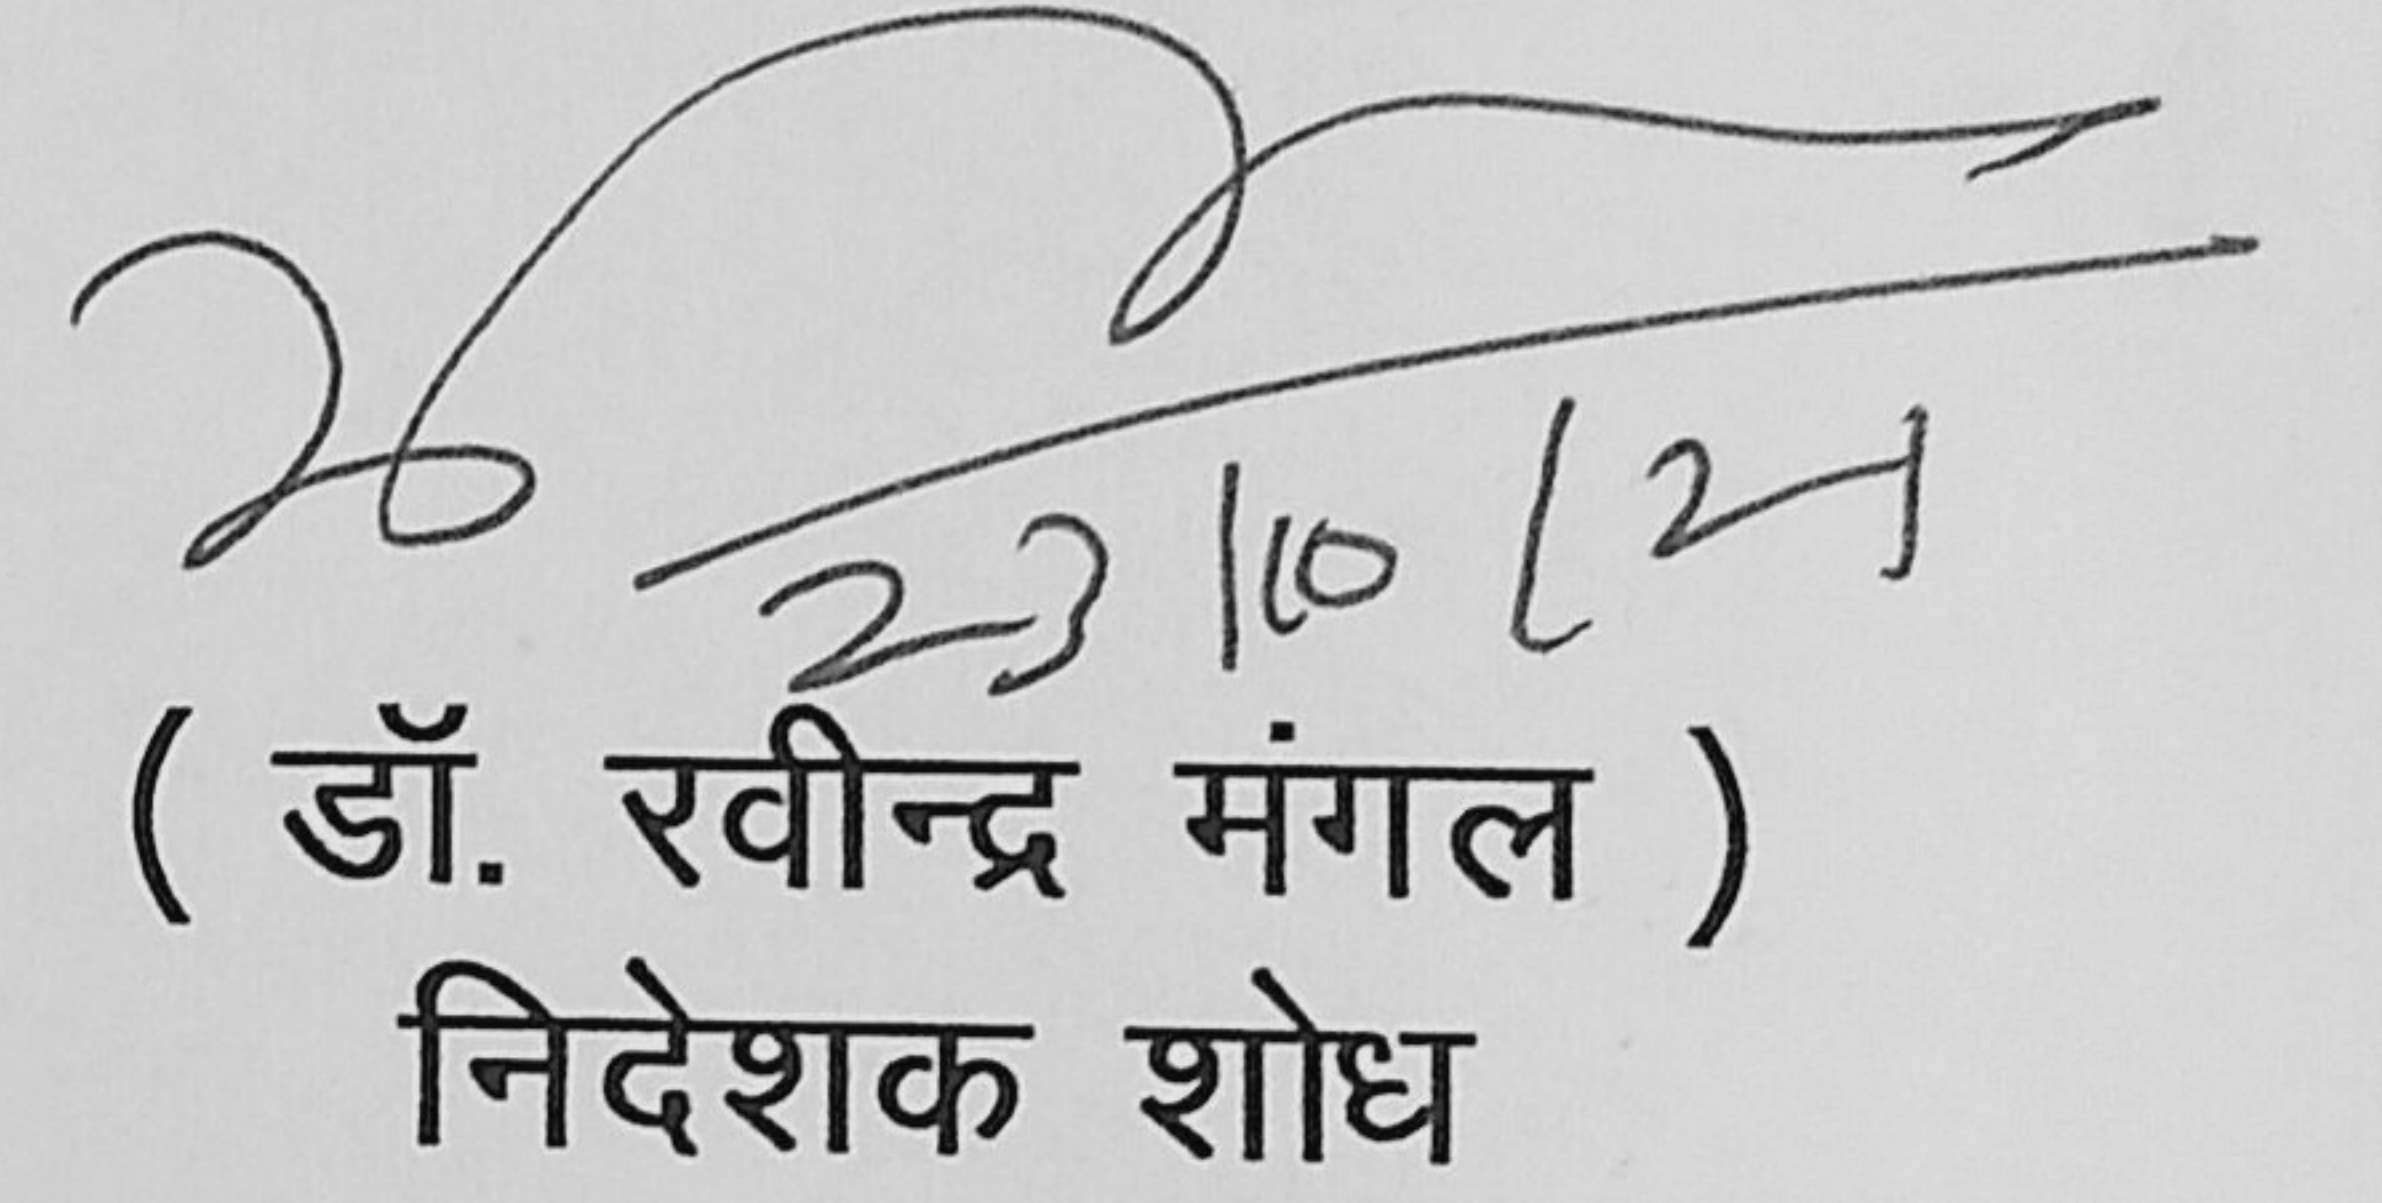 23/10/21
( डॉ. रवीन्द्र मंगल )
निदेशक शोध